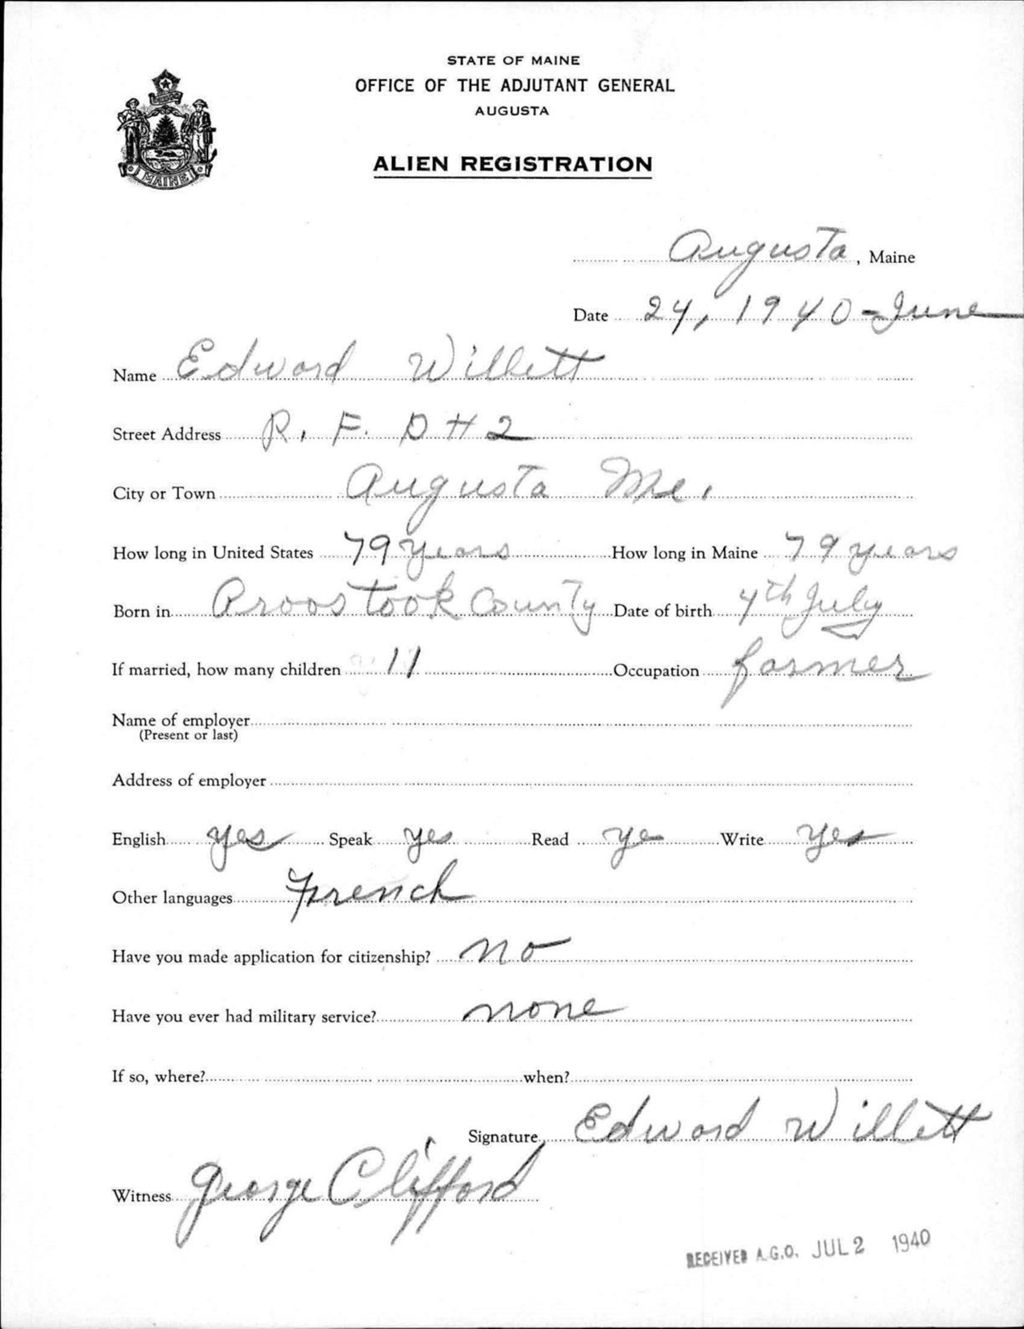 STATE OF MAINE
OFFICE OF THE ADJUTANT GENERAL
AUGUSTA
MAINE
ALIEN REGISTRATION
Augusta, Maine
Date 24, 1940 - June
Name Edward Willett
Street Address R. F. D # 2
City or Town Augusta Me.
How long in United States 79 years How long in Maine 79 years
Born in Aroostook County Date of birth 4th July
If married, how many children 11 Occupation farmer
Name of employer
(Present or last)
Address of employer
English yes Speak yes Read ye Write yes
Other languages French
Have you made application for citizenship? no
Have you ever had military service? none
If so, where? when?
Signature Edward Willett
Witness George Clifford
RECEIVED A.G.O. JUL 2 1940